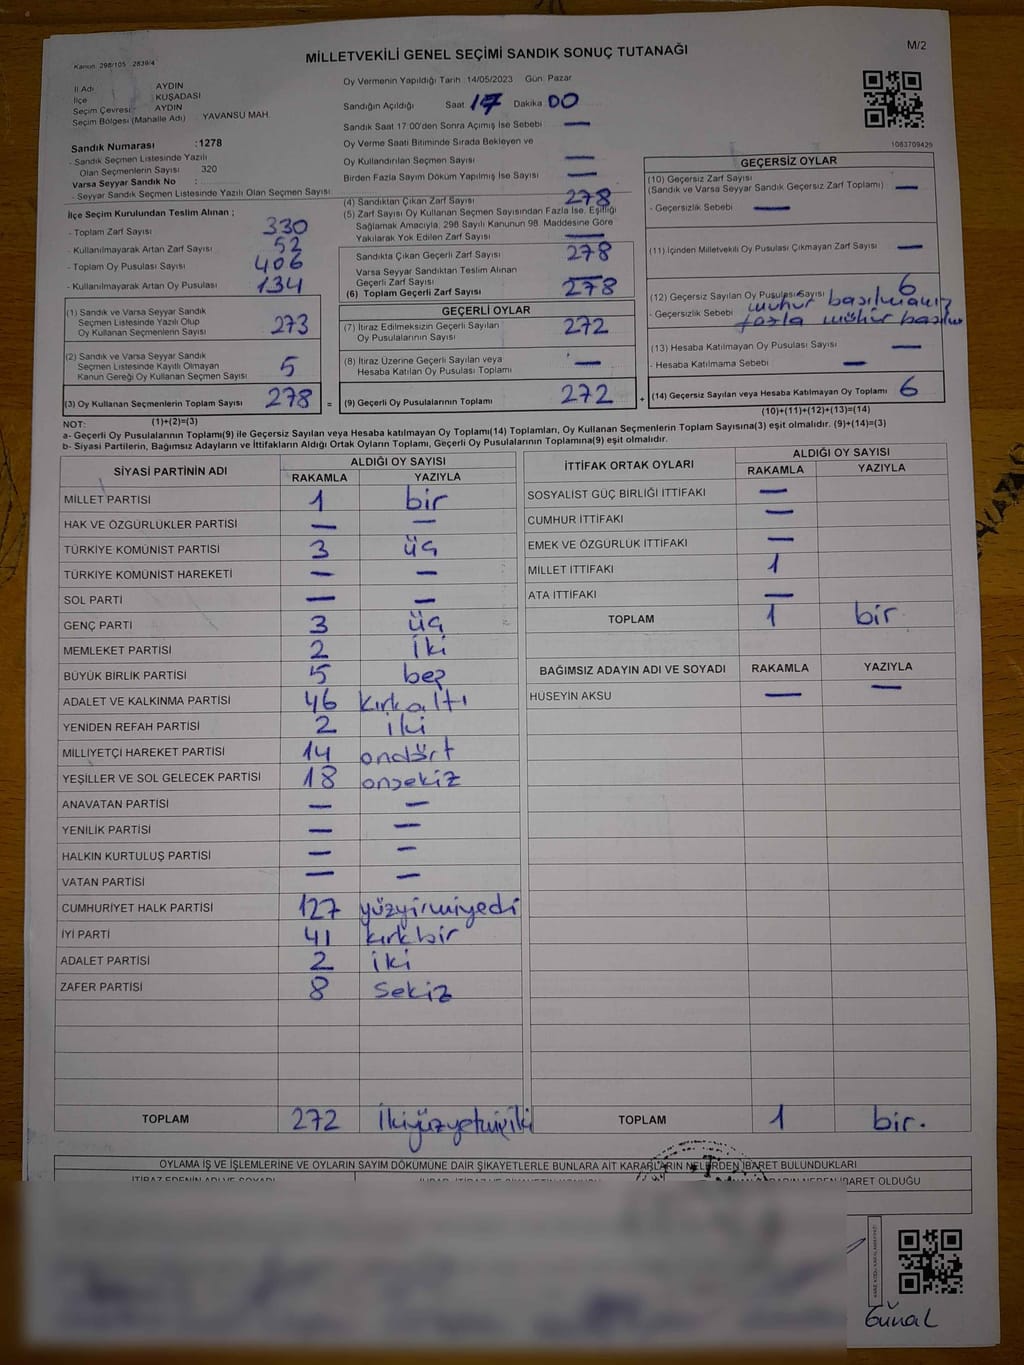 MİLLETVEKİLİ GENEL SEÇİMİ SANDIK SONUÇ TUTANAĞI
M/2
Kanun: 298/105 2839/4
İl Adı AYDIN
İlçe KUŞADASI
Seçim Çevresi AYDIN
Seçim Bölgesi (Mahalle Adı) YAVANSU MAH.
Sandık Numarası :1278
- Sandık Seçmen Listesinde Yazılı
Olan Seçmenlerin Sayısı 320
Varsa Seyyar Sandık No :
- Seyyar Sandık Seçmen Listesinde Yazılı Olan Seçmen Sayısı:
Oy Vermenin Yapıldığı Tarih :14/05/2023 Gün: Pazar
Sandığın Açıldığı Saat 17 Dakika 00
Sandık Saat 17:00'den Sonra Açımış İse Sebebi —
Oy Verme Saati Bitiminde Sırada Bekleyen ve
Oy Kullandırılan Seçmen Sayısı —
Birden Fazla Sayım Döküm Yapılmış İse Sayısı —
1063709429
İlçe Seçim Kurulundan Teslim Alınan ;
- Toplam Zarf Sayısı 330
- Kullanılmayarak Artan Zarf Sayısı 52
- Toplam Oy Pusulası Sayısı 406
- Kullanılmayarak Artan Oy Pusulası 134
(1) Sandık ve Varsa Seyyar Sandık
Seçmen Listesinde Yazılı Olup
Oy Kullanan Seçmenlerin Sayısı 273
(2) Sandık ve Varsa Seyyar Sandık
Seçmen Listesinde Kayıtlı Olmayan
Kanun Gereği Oy Kullanan Seçmen Sayısı 5
(3) Oy Kullanan Seçmenlerin Toplam Sayısı 278 =
(1)+(2)=(3)
(4) Sandıktan Çıkan Zarf Sayısı 278
(5) Zarf Sayısı Oy Kullanan Seçmen Sayısından Fazla İse, Eşitliği
Sağlamak Amacıyla, 298 Sayılı Kanunun 98. Maddesine Göre
Yakılarak Yok Edilen Zarf Sayısı —
Sandıkta Çıkan Geçerli Zarf Sayısı 278
Varsa Seyyar Sandıktan Teslim Alınan
Geçerli Zarf Sayısı —
(6) Toplam Geçerli Zarf Sayısı 278
GEÇERLİ OYLAR
(7) İtiraz Edilmeksizin Geçerli Sayılan
Oy Pusulalarının Sayısı 272
(8) İtiraz Üzerine Geçerli Sayılan veya
Hesaba Katılan Oy Pusulası Toplamı —
(9) Geçerli Oy Pusulalarının Toplamı 272 +
GEÇERSİZ OYLAR
(10) Geçersiz Zarf Sayısı
(Sandık ve Varsa Seyyar Sandık Geçersiz Zarf Toplamı) —
- Geçersizlik Sebebi —
(11) İçinden Milletvekili Oy Pusulası Çıkmayan Zarf Sayısı —
(12) Geçersiz Sayılan Oy Pusulası Sayısı 6
- Geçersizlik Sebebi mühür basılmamış
fazla mühür basılm
(13) Hesaba Katılmayan Oy Pusulası Sayısı —
- Hesaba Katılmama Sebebi —
(14) Geçersiz Sayılan veya Hesaba Katılmayan Oy Toplamı 6
(10)+(11)+(12)+(13)=(14)
NOT:
a- Geçerli Oy Pusulalarının Toplamı(9) ile Geçersiz Sayılan veya Hesaba Katılmayan Oy Toplamı(14) Toplamları, Oy Kullanan Seçmenlerin Toplam Sayısına(3) eşit olmalıdır. (9)+(14)=(3)
b- Siyasi Partilerin, Bağımsız Adayların ve İttifakların Aldığı Ortak Oyların Toplamı, Geçerli Oy Pusulalarının Toplamına(9) eşit olmalıdır.
SİYASİ PARTİNİN ADI ALDIĞI OY SAYISI
RAKAMLA YAZIYLA
MİLLET PARTİSİ 1 bir
HAK VE ÖZGÜRLÜKLER PARTİSİ — —
TÜRKİYE KOMÜNİST PARTİSİ 3 üç
TÜRKİYE KOMÜNİST HAREKETİ — —
SOL PARTİ — —
GENÇ PARTİ 3 üç
MEMLEKET PARTİSİ 2 iki
BÜYÜK BİRLİK PARTİSİ 5 beş
ADALET VE KALKINMA PARTİSİ 46 kırkaltı
YENİDEN REFAH PARTİSİ 2 iki
MİLLİYETÇİ HAREKET PARTİSİ 14 ondört
YEŞİLLER VE SOL GELECEK PARTİSİ 18 onsekiz
ANAVATAN PARTİSİ — —
YENİLİK PARTİSİ — —
HALKIN KURTULUŞ PARTİSİ — —
VATAN PARTİSİ — —
CUMHURİYET HALK PARTİSİ 127 yüzyirmiyedi
İYİ PARTİ 41 kırkbir
ADALET PARTİSİ 2 iki
ZAFER PARTİSİ 8 sekiz
TOPLAM 272 İkiyüzyetmişiki
İTTİFAK ORTAK OYLARI ALDIĞI OY SAYISI
RAKAMLA YAZIYLA
SOSYALİST GÜÇ BİRLİĞİ İTTİFAKI —
CUMHUR İTTİFAKI —
EMEK VE ÖZGÜRLÜK İTTİFAKI —
MİLLET İTTİFAKI 1
ATA İTTİFAKI —
TOPLAM 1 bir
BAĞIMSIZ ADAYIN ADI VE SOYADI RAKAMLA YAZIYLA
HÜSEYİN AKSU — —
TOPLAM 1 bir.
OYLAMA İŞ VE İŞLEMLERİNE VE OYLARIN SAYIM DÖKÜMÜNE DAİR ŞİKAYETLERLE BUNLARA AİT KARARLARIN NELERDEN İBARET BULUNDUKLARI
İTİRAZ EDENİN ADI VE SOYADI
Günal